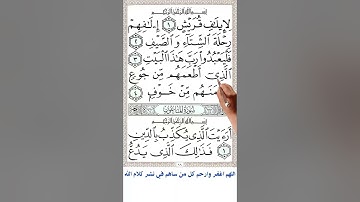 بسم الله الرحمن الرحيم
لإيلف قريش ١ إلفهم
رحلة الشتاء والصيف ٢
فليعبدوا رب هذا البيت ٣
الذي أطعمهم من جوع
منهم من خوف ٤
سورة الماعون
بسم الله الرحمن الرحيم
أرءيت الذي يكذب بالدين
١ فذلك الذي يدع
اللهم اغفر وارحم كل من ساهم في نشر كلام الله